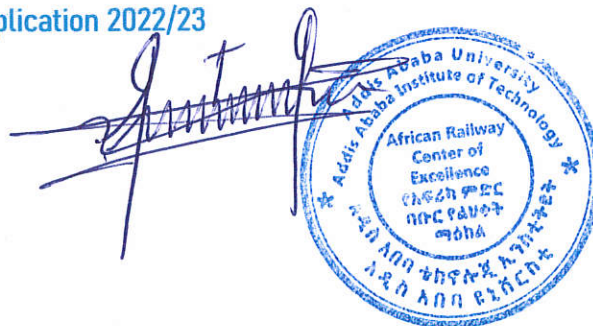 plication 2022/23
Addis Ababa University
Addis Ababa Institute of Technology
African Railway
Center of
Excellence
የአፍሪካ ምድር
ባቡር የልህቀት
ማዕከል
አዲስ አበባ ቴክኖሎጂ ኢንስቲትዩት
አዲስ አበባ ዩኒቨርስቲ